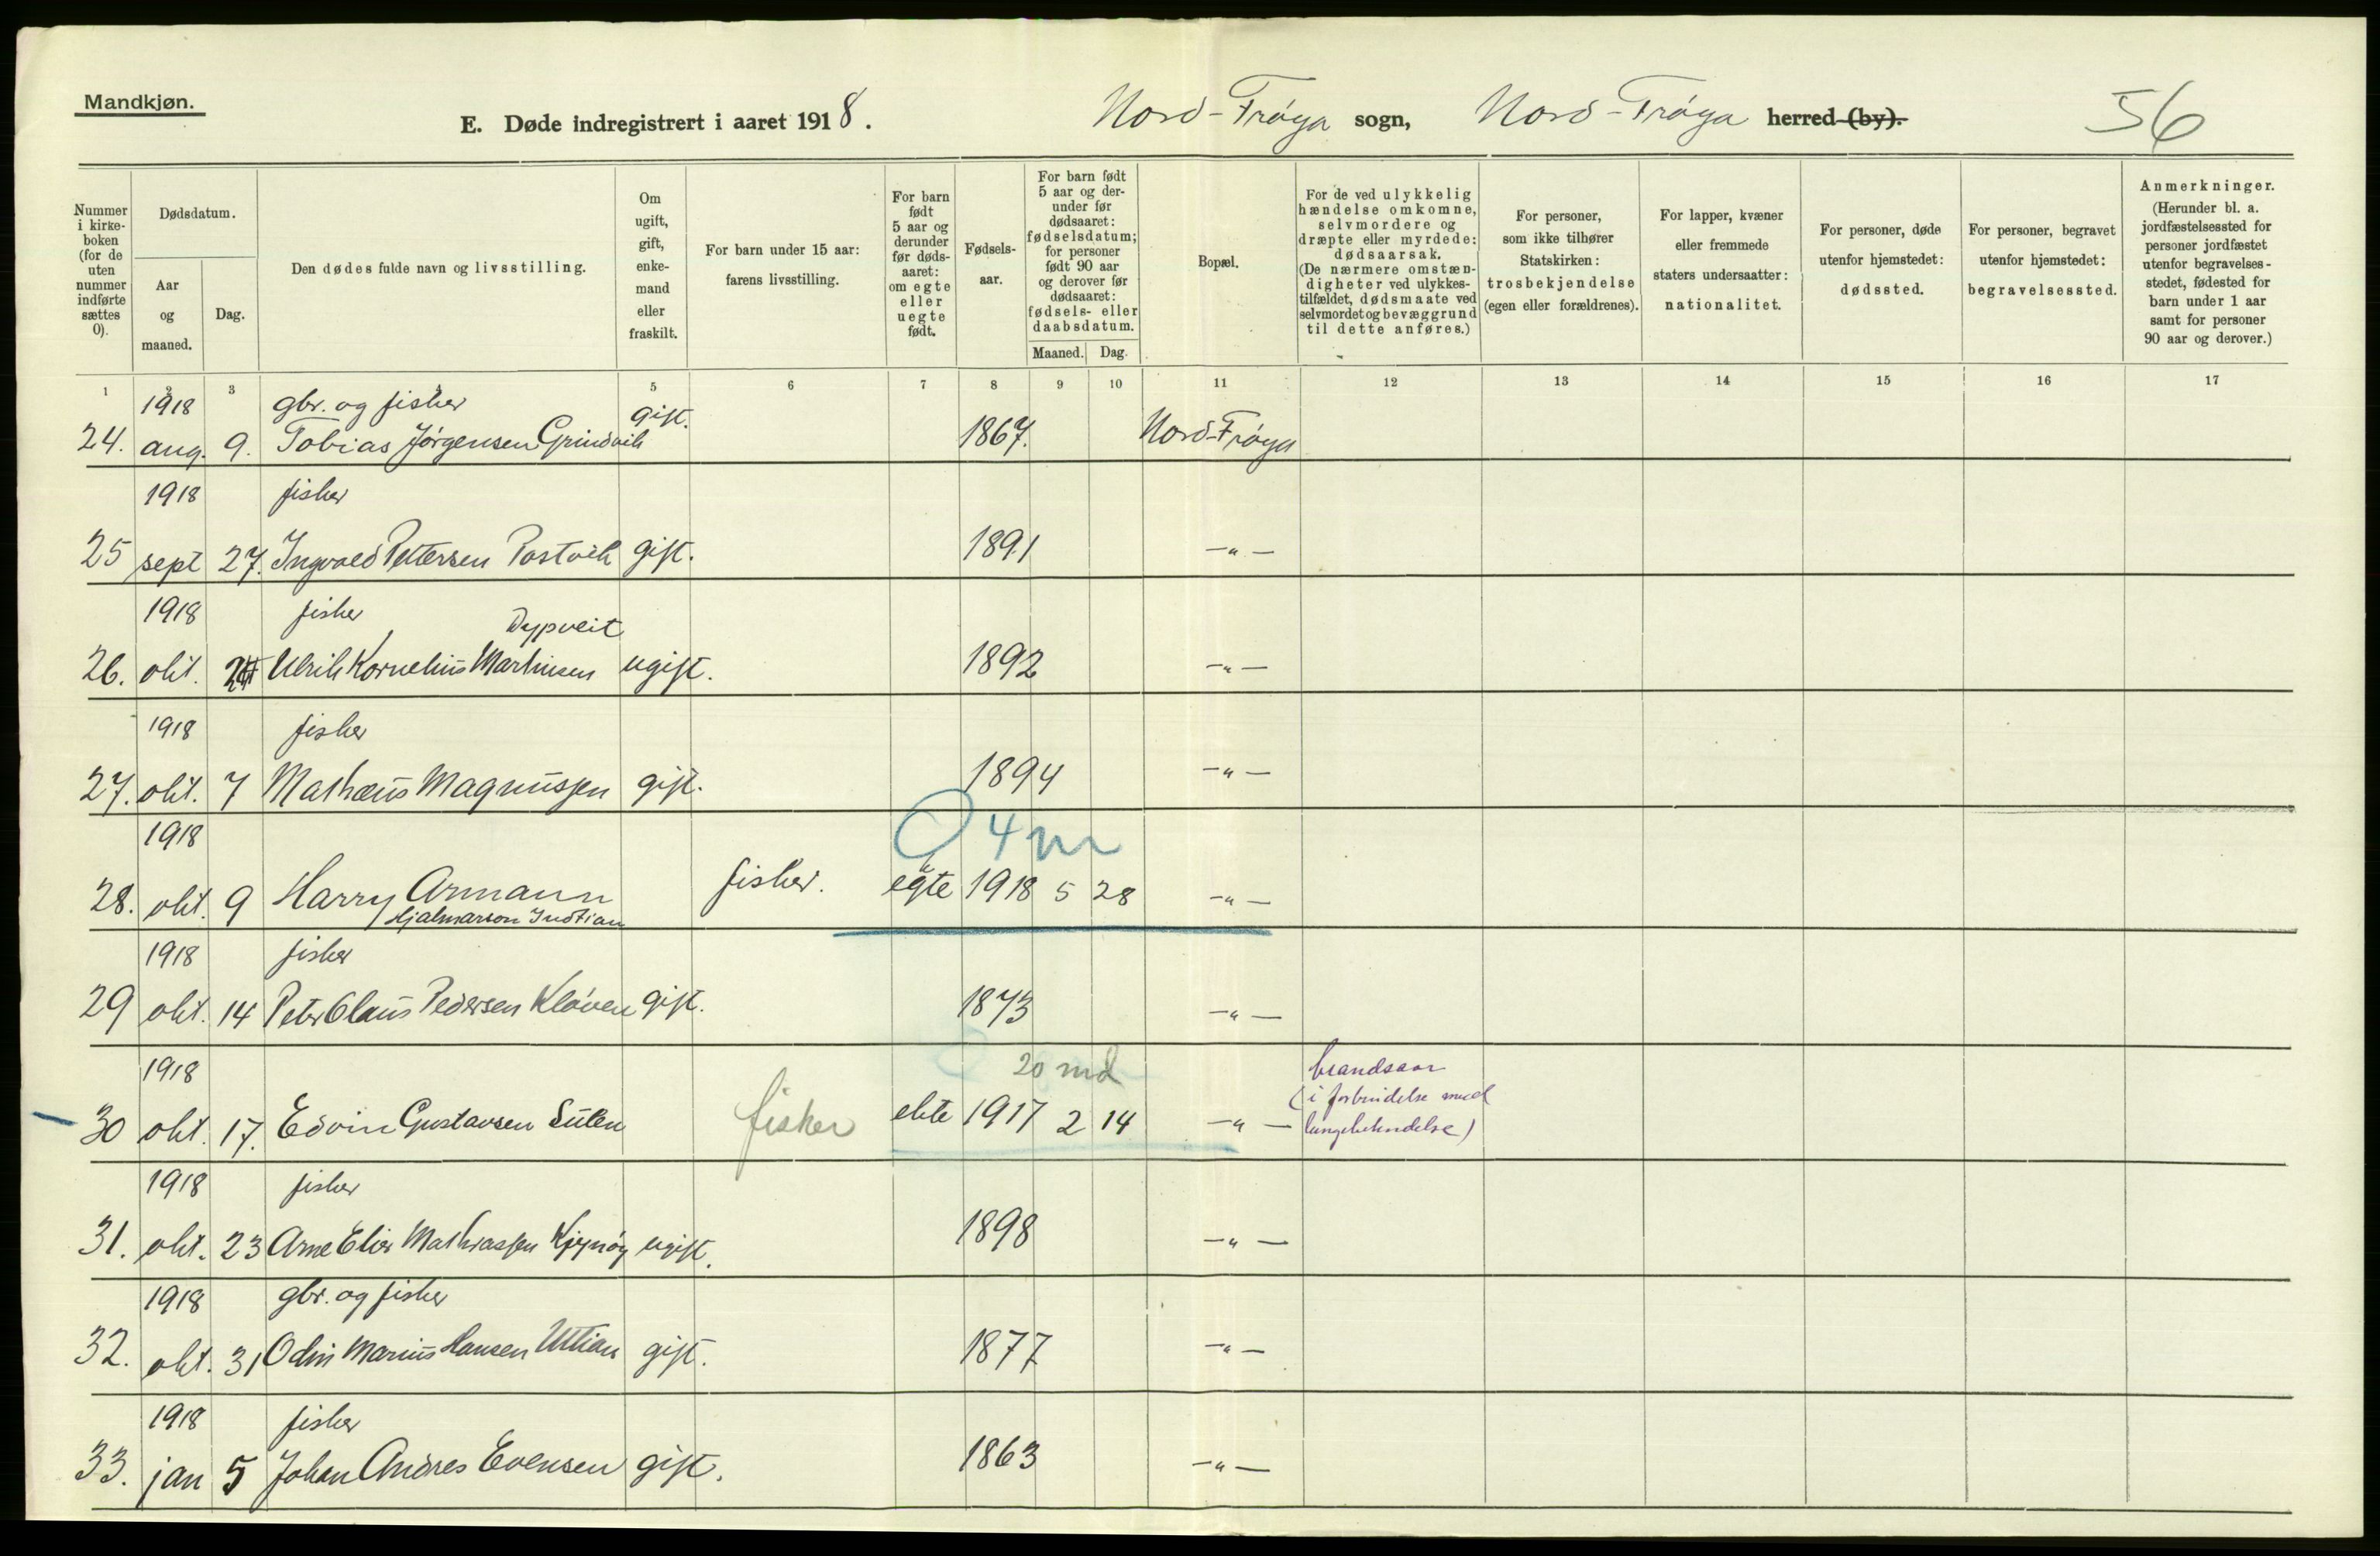 Mandkjøn.
E. Døde indregistrert i aaret 1918. Nord-Frøya sogn, Nord-Frøya herred (by). 56
Nummer i kirke-boken (for de uten nummer indførte sættes 0).
Dødsdatum.
Aar og maaned.
Dag.
Den dødes fulde navn og livsstilling.
Om ugift, gift, enke-mand eller fraskilt.
For barn under 15 aar: farens livsstilling.
For barn født 5 aar og derunder før døds-aaret: om egte eller uegte født.
Fødsels-aar.
For barn født 5 aar og der-under før dødsaaret: fødselsdatum; for personer født 90 aar og derover før dødsaaret: fødsels- eller daabsdatum.
Maaned. Dag.
Bopæl.
For de ved ulykkelig hændelse omkomne, selvmordere og dræpte eller myrdede: dødsaarsak. (De nærmere omstæn-digheter ved ulykkes-tilfældet, dødsmaate ved selvmordet og bevæggrund til dette anføres.)
For personer, som ikke tilhører Statskirken: trosbekjendelse (egen eller forældrenes).
For lapper, kvæner eller fremmede staters undersaatter: nationalitet.
For personer, døde utenfor hjemstedet: dødssted.
For personer, begravet utenfor hjemstedet: begravelsessted.
Anmerkninger. (Herunder bl. a. jordfæstelsessted for personer jordfæstet utenfor begravelses-stedet, fødested for barn under 1 aar samt for personer 90 aar og derover.)
1 2 3 4 5 6 7 8 9 10 11 12 13 14 15 16 17
1918 gbr. og fisker
24. aug. 9. Tobias Jørgensen Grindvik gift. 1867. Nord-Frøya
1918 fisker
25 sept 27. Ingvald Pettersen Postvik gift. 1891 —"—
1918 fisker Dypveit
26. okt. Ulrik Kornelius Martinsen ugift. 1892 —"—
1918 fisker
27. okt. 7 Mathæus Magnussen gift. 1894 —"—
1918 4 m
28. okt. 9 Harry Armann fisker. egte 1918 5 28 —"—
Hjalmarson Indtian
1918 fisker
29 okt. 14 Peter Olaus Pedersen Kløven gift. 1873 —"—
1918 20 md brandsaar
(i forbindelse med
30 okt. 17. Edvin Gustavsen Sulen fisker ekte 1917 2 14 —"— lungebetendelse)
1918 fisker
31. okt. 23 Arne Elias Mathiassen ugift. 1898 —"—
1918 gbr. og fisker
32. okt. 31 Odin Marius Hansen Uttian gift. 1877 —"—
1918 fisker
33. jan 5 Johan Andres Evensen gift. 1863 —"—